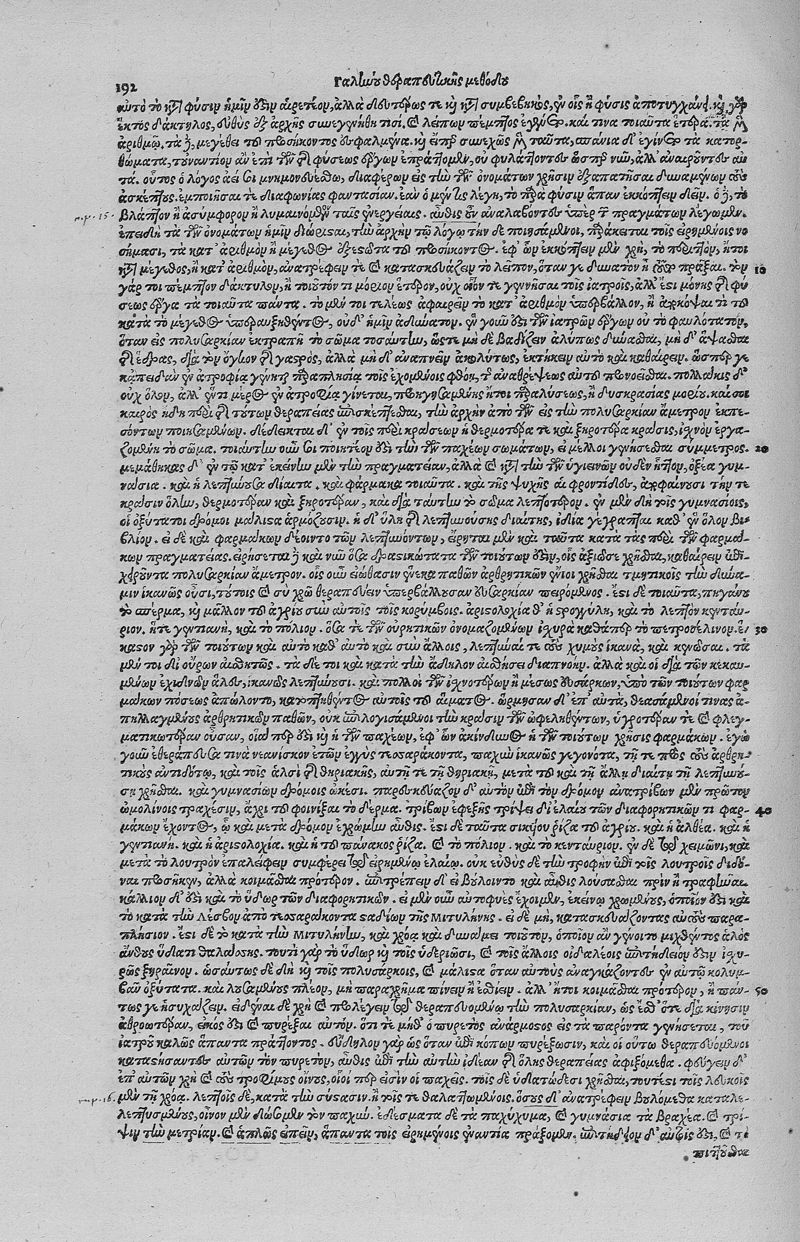 192 Γαληνοῦ θεραπευτικῆς μεθόδου
αὐτὸ τὸ κατὰ φύσιν ἡμῖν ἐστιν αἱρετέον, ἀλλὰ δευτέρως τε καὶ κατὰ συμβεβηκὸς, ἐν οἷς ἡ φύσις ἀποτυγχάνει. καὶ γὰρ
ἕκτος δάκτυλος, εὐθὺς ἐξ ἀρχῆς συνεγεννήθη τισὶ, καὶ λείπων πέμπτος ἐγένετο. καί τινα τοιαῦτα ἕτερα. τὰ μὲν
ἀριθμῷ. τὰ δὲ, μεγέθει τοῦ προσήκοντος σφαλμένα. καὶ εἴπερ συνεχῶς μὲν ταῦτα, σπάνια δ' ἐγίνετο τὰ κατορ-
θώματα, τοὐναντίον ἂν ἐπὶ τῶν τῆς φύσεως ἔργων ἐπράττομεν, οὐ φυλάττοντες ὥσπερ νῦν, ἀλλ' ἀναιροῦντες αὐ
τά. οὗτος ὁ λόγος ἀεί σοι μνημονευέσθω, διαφέρων εἰς τὴν τῶν ὀνομάτων χρῆσιν ἐξαπατῆσαι δυναμένων τοὺς
ἀσκέπτους. ἐμποιῆσαί τε διαφωνίας φαντασίαν. ἐὰν ὁ μέν τις λέγῃ, τὸ παρὰ φύσιν ἅπαν ἐκκόπτειν δεῖν. ὁ δὲ, τὸ
βλάπτον ἢ ἀσύμφορον ἢ λυμαινόμενον ταῖς ἐνεργείαις. αὖθις οὖν ἀναλαβόντες ὑπὲρ τῶν πραγμάτων λέγωμεν.
ἐπειδὴ τὰ τῶν ὀνομάτων ἡμῖν διώρισται, τὴν ἀρχὴν τῷ λόγῳ τήνδε ποιησάμενοι, πρόκειται τοῖς εἰρημένοις νο
σήμασι, τὰ κατ' ἀριθμὸν ἢ μέγεθος ἐξεστῶτα τοῦ προσήκοντος. ἐφ' ὧν ἐκκόπτειν μὲν χρὴ, τὸ περιττὸν, ἤτοι
κατὰ μέγεθος, ἢ κατ' ἀριθμὸν, ἀνατρέφειν τε καὶ κατασκευάζειν τὸ λεῖπον, ὅταν γε δυνατὸν ᾖ τοῦτο πρᾶξαι. τὸν 10
γάρ τοι πέμπτον δάκτυλον, ἢ τοιοῦτόν τι μόριον ἕτερον, οὐχ οἷόν τε γεννῆσαι τοῖς ἰατροῖς, ἀλλ' ἔστι μόνης τῆς φύ
σεως ἔργα τὰ τοιαῦτα πάντα. τὸ μέν τοι τελέως ἀφαιρεῖν τὸ κατ' ἀριθμὸν ὑπερβάλλον, ἢ ἀποκόψαι τι τοῦ
κατὰ τὸ μέγεθος ὑπεραυξηθέντος, οὐδ' ἡμῖν ἀδύνατον. ἓν γοῦν ἐστι τῶν ἰατρῶν ἔργων οὐ τὸ φαυλότατον,
ὅταν εἰς πολυσαρκίαν ἐκτραπῇ τὸ σῶμα τοσαύτην, ὥστε μηδὲ βαδίζειν ἀλύπως δύνασθαι, μηδ' ἅψασθαι
τῆς ἕδρας, διὰ τὸν ὄγκον τῆς γαστρὸς, ἀλλὰ μηδ' ἀναπνεῖν ἀκωλύτως, ἐκτήκειν αὐτὸ καὶ καθαιρεῖν. ὥσπερ γε
κἀπειδὰν ἐν ἀτροφίᾳ γένηται παραπλησίᾳ τοῖς ἐχομένοις φθόῃ, τῆς ἀναθρέψεως αὐτοῦ προνοεῖσθαι. πολλάκις δ'
οὐχ ὅλον, ἀλλ' ἕν τι μέρος ἐν ἀτροφίᾳ γίνεται, προηγησαμένης ἤτοι παραλύσεως, ἢ δυσκρασίας μοχθηρᾶς. καίτοι
καιρὸς ἤδη περὶ τῆς τούτων θεραπείας ἐπισκέπτεσθαι, τὴν ἀρχὴν ἀπὸ τῶν εἰς τὴν πολυσαρκίαν ἄμετρον ἐκπε-
σόντων ποιησαμένων. δέδεικται δ' ἐν τοῖς περὶ κράσεων ἡ θερμοτέρα τε καὶ ξηροτέρα κρᾶσις, ἰσχνὸν ἐργα-
ζομένη τὸ σῶμα. τοιαύτην οὖν σοι ποιητέον ἐστὶ τὴν τῶν παχέων σωμάτων, εἰ μέλλοι γενήσεσθαι σύμμετρος. 20
μεμάθηκας δ' ἐν τῷ κατ' ἐκείνην μὲν τὴν πραγματείαν, ἀλλὰ καὶ κατὰ τὴν τῶν ὑγιεινῶν οὐδὲν ἧττον, ὀξέα γυμ-
νάσια. καὶ ἡ λεπτύνουσα δίαιτα. καὶ φάρμακα τοιαῦτα. καὶ τῆς ψυχῆς αἱ φροντίδες, ἀποφαίνουσι τήν τε
κρᾶσιν ὅλην, θερμοτέραν καὶ ξηροτέραν, καὶ διὰ ταύτην τὸ σῶμα λεπτότερον. ἐν μὲν δὴ τοῖς γυμνασίοις,
οἱ ὀξύτατοι δρόμοι μάλιστα ἁρμόζουσιν. ἡ δ' ὕλη τῆς λεπτυνούσης διαίτης, ἰδίᾳ γέγραπται καθ' ἓν ὅλον βι-
βλίον. εἰ δὲ καὶ φαρμάκων δέοιντο τῶν λεπτυνόντων, εἴρηται μὲν καὶ ταῦτα κατὰ τὰς περὶ τῶν φαρμά-
κων πραγματείας. εἰρήσεται δὲ καὶ νῦν ὅσα δραστικώτατα τῶν τοιούτων ἐστὶν, οἷς ἀξιῶ σε χρῆσθαι, καθαιρεῖν ἐπι-
χειροῦντα πολυσαρκίαν ἄμετρον. οἷς οὖν εἰώθασιν ἕνεκα παθῶν ἀρθριτικῶν ἔνιοι χρῆσθαι τμητικοῖς τὴν δύνα-
μιν ἱκανῶς οὖσι, τούτοις καὶ σὺ χρῶ θεραπεύειν ὑπερβάλλουσαν εὐσαρκίαν πειρώμενος. ἔστι δὲ τοιαῦτα, πηγάνου
τὸ σπέρμα, καὶ μᾶλλον τοῦ ἀγρίου σὺν αὐτοῖς τοῖς κορύμβοις. ἀριστολοχία θ' ἡ στρογγύλη, καὶ τὸ λεπτὸν κενταύ-
ριον. ἥ τε γεντιανὴ, καὶ τὸ πόλιον. ὅσα τε τῶν οὐρητικῶν ὀνομαζομένων ἰσχυρὰ καθάπερ τὸ πετροσέλινον. ἕ- 30
καστον γὰρ τῶν τοιούτων καὶ αὐτὸ καθ' αὑτὸ καὶ σὺν ἄλλοις, λεπτῦναί τε τοὺς χυμοὺς ἱκανὰ, καὶ κενῶσαι. τὰ
μέν τοι δι' οὔρων αἰσθητῶς. τὰ δέ τοι καὶ κατὰ τὴν ἄδηλον αἰσθήσει διαπνοήν. ἀλλὰ καὶ οἱ διὰ τῶν κεκαυ-
μένων ἐχιδνῶν ἅλες, ἱκανῶς λεπτύνουσι. καὶ πολλοὶ τῶν ἰσχνοτέρων ἢ μέσως εὐσάρκων, ὑπὸ τῶν τοιούτων φαρ
μάκων πόσεως ἀπώλοντο, κατοπτηθέντος αὐτοῖς τοῦ αἵματος. ὥρμησαν δ' ἐπ' αὐτὰ, θεασάμενοί τινας ἀ-
πηλλαγμένους ἀρθριτικῶν παθῶν, οὐκ ἐπιλογισάμενοι τὴν κρᾶσιν τῶν ὠφεληθέντων, ὑγροτέραν τε καὶ φλεγ-
ματικωτέραν οὖσαν, οἵα πέρ ἐστι καὶ ἡ τῶν παχέων, ἐφ' ὧν ἀκίνδυνος ἡ τῶν τοιούτων χρῆσις φαρμάκων. ἐγὼ
γοῦν ἐθεράπευσά τινα νεανίσκον ἐτῶν ἐγγὺς τεσσαράκοντα, παχὺν ἱκανῶς γεγονότα, τῇ τε πρὸς τοὺς ἀρθρι-
τικοὺς ἀντιδότῳ, καὶ τοῖς ἁλσὶ τῆς θηριακῆς, αὐτῇ τε τῇ θηριακῇ, μετὰ τοῦ καὶ τῇ ἄλλῃ διαίτῃ τῇ λεπτυνού-
σῃ χρῆσθαι. καὶ γυμνασίων δρόμοις ὠκέσι. παρεσκεύαζον δ' αὐτὸν ἐπὶ τὸν δρόμον ἀνατρίβων μὲν πρῶτον
ὠμολίνοις τραχέσιν, ἄχρι τοῦ φοινίξαι τὸ δέρμα. τρίβων ἐφεξῆς τρίψει δι' ἐλαίου τῶν διαφορητικῶν τι φαρ- 40
μάκων ἔχοντος, ᾧ καὶ μετὰ δρόμον ἐχρώμην αὖθις. ἔστι δὲ ταῦτα σικύου ῥίζα τοῦ ἀγρίου. καὶ ἡ ἀλθέα. καὶ ἡ
γεντιανή. καὶ ἡ ἀριστολοχία. καὶ ἡ τοῦ πάνακος ῥίζα. καὶ τὸ πόλιον. καὶ τὸ κενταύριον. ἐν δὲ τῷ χειμῶνι, καὶ
μετὰ τὸ λουτρὸν ἐπαλείφειν συμφέρει τῷ εἰρημένῳ ἐλαίῳ. οὐκ εὐθὺς δὲ τὴν τροφὴν ἐπὶ τοῖς λουτροῖς διδό-
ναι προσῆκεν, ἀλλὰ κοιμᾶσθαι πρότερον. ἐπιτρέπειν δ' εἰ βούλοιντο καὶ αὖθις λούσασθαι πρὶν ἢ τραφῆναι.
κάλλιον δ' ἐστὶ καὶ τὸ ὕδωρ τῶν διαφορητικῶν. εἰ μὲν οὖν αὐτοφυὲς ἔχοιμεν, ἐκείνῳ χρωμένους, ὁποῖόν ἐστι καὶ
τὸ κατὰ τὴν Λέσβον ἀπὸ τεσσαράκοντα σταδίων τῆς Μιτυλήνης. εἰ δὲ μὴ, κατασκευάζοντας αὐτοὺς παρα-
πλήσιον. ἔστι δὲ τὸ κατὰ τὴν Μιτυλήνην, καὶ χρόᾳ καὶ δυνάμει τοιοῦτον, ὁποῖον ἂν γένοιτο μιχθέντος ἁλὸς
ἄνθους ὕδατι θαλάσσης. τουτὶ γὰρ τὸ ὕδωρ καὶ τοῖς ὑδεριῶσι, καὶ τοῖς ἄλλοις οἰδαλέοις ἐπιτήδειόν ἐστιν ἰσχυ-
ρῶς ξηραῖνον. ὡσαύτως δὲ δὴ καὶ τοῖς πολυσάρκοις, καὶ μάλιστα ὅταν αὐτοὺς ἀναγκάζοντες ἐν αὐτῷ κολυμ-
βᾶν ὀξύτατα. καὶ λουσαμένους πλέον, μὴ παραχρῆμα πίνειν ἢ ἐσθίειν. ἀλλ' ἤτοι κοιμᾶσθαι πρότερον, ἢ πάν- 50
τως γε ἡσυχάζειν. εἰδέναι δὲ χρὴ καὶ προλέγειν τῷ θεραπευομένῳ τὴν πολυσαρκίαν, ὡς ἔσθ' ὅτε διὰ κίνησιν
ἀθροωτέραν, εἰκός ἐστι καὶ πυρέξαι αὐτόν. ὅτι τε μηθ' ὁ πυρετὸς ἀνάρμοστος εἰς τὰ παρόντα γενήσεται, τοῦ
ἰατροῦ καλῶς ἅπαντα πράττοντος. εὔδηλον γὰρ ὡς ὅταν ἐπὶ κόπων πυρέξωσιν, καὶ οἱ οὕτω θεραπευόμενοι
καταστήσαντες αὐτῶν τὸν πυρετὸν, αὖθις ἐπὶ τὴν αὐτὴν ἰδέαν τῆς ὅλης θεραπείας ἀφιξόμεθα. φεύγειν δ'
ἐπ' αὐτῶν χρὴ καὶ τοὺς τροφίμους οἴνους, οἷοί πέρ εἰσιν οἱ παχεῖς. τοῖς δὲ ὑδατώδεσι χρῆσθαι, τουτέστι τοῖς λευκοῖς
μὲν τὴν χρόαν. λεπτοῖς δὲ, κατὰ τὴν σύστασιν. ἢ τοῖς τεθαλαττωμένοις. ὅσους δ' ἀνατρέφειν βουλόμεθα καταλε-
λεπτυσμένους, οἶνον μὲν δώσομεν τὸν παχύν. ἐδέσματα δὲ τὰ παχύχυμα, καὶ γυμνάσια τὰ βραχέα. καὶ τρί-
ψιν τὴν μετρίαν. καὶ ἁπλῶς εἰπεῖν, ἅπαντα τοῖς εἰρημένοις ἐναντία πράξομεν. ἐπιτήδειον δ' αὐτοῖς ἐστι, καὶ τὸ
πιττοῦσθαι